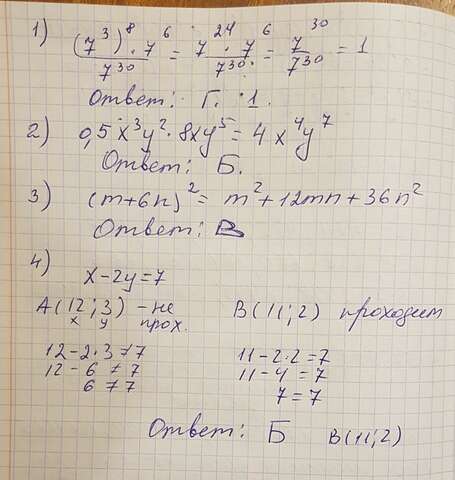 1) (7³)⁸ · 7⁶ / 7³⁰ = 7²⁴ · 7⁶ / 7³⁰ = 7³⁰ / 7³⁰ = 1
Ответ: Г. 1.
2) 0,5x³y² · 8xy⁵ = 4x⁴y⁷
Ответ: Б.
3) (m+6n)² = m² + 12mn + 36n²
Ответ: В
4) x-2y=7
A(12;3) - не прох.
x y
12-2·3≠7
12-6≠7
6≠7
B(11;2) проходит
11-2·2=7
11-4=7
7=7
Ответ: Б B(11;2)